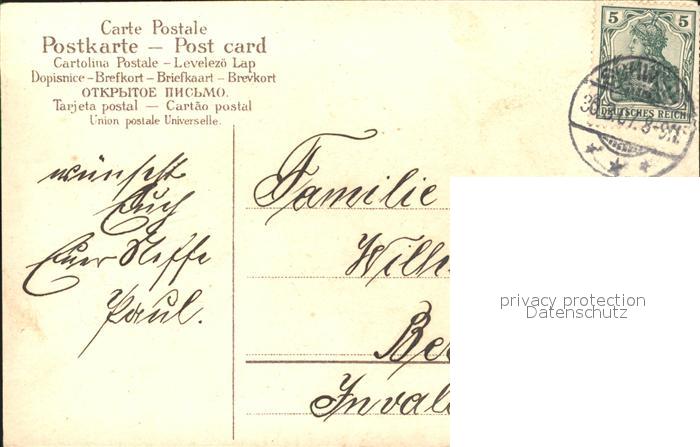 Carte Postale
Postkarte — Post card
Cartolina Postale – Levelező Lap
Dopisnice – Brefkort – Briefkaart – Brevkort
ОТКРЫТОЕ ПИСЬМО.
Tarjeta postal — Cartão postal
Union postale Universelle.
5 5
DEUTSCHES REICH
30. 07. 8-9N.
wünscht
Euch
Euer Neffe
Paul.
Familie
Wilh
Be
Inval
privacy protection
Datenschutz